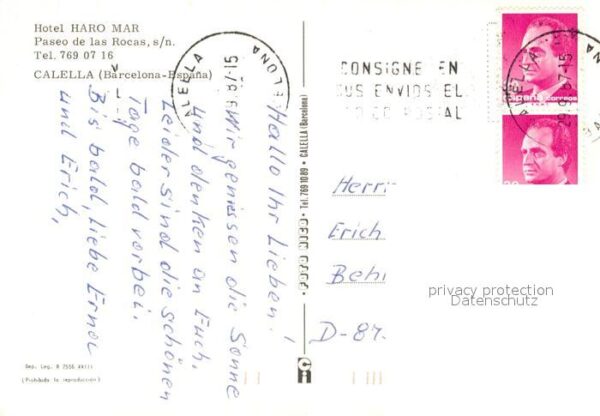 Hotel HARO MAR
Paseo de las Rocas, s/n.
Tel. 769 07 16
CALELLA (Barcelona-España)
Hallo Ihr Lieben!
Wir geniessen die Sonne
und denken an Euch.
Leider sind die schönen
Tage bald vorbei.
Bis bald, liebe Erna
und Erich,
Dep. Leg. B
(Prohibida la reproducción)
Tel. 769 10 89 - CALELLA (Barcelona)
CALELLA
CONSIGNE EN
SUS ENVIOS EL
POSTAL
España correos
Herrn
Erich
Behi
D-87.
privacy protection
Datenschutz